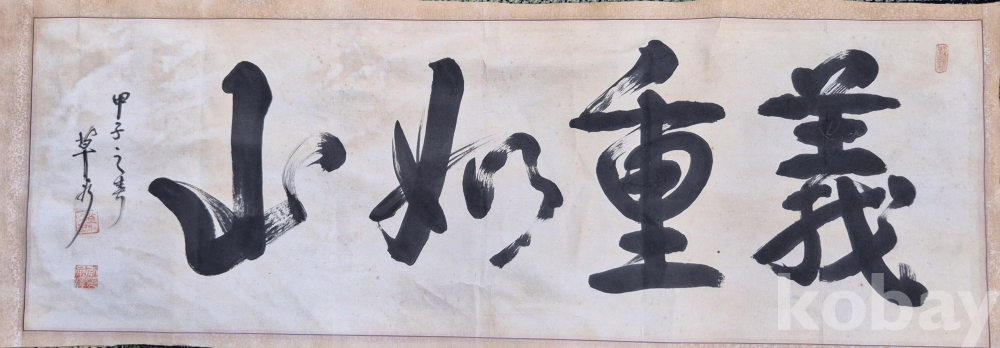 義重如山
甲子之春
草
kobay